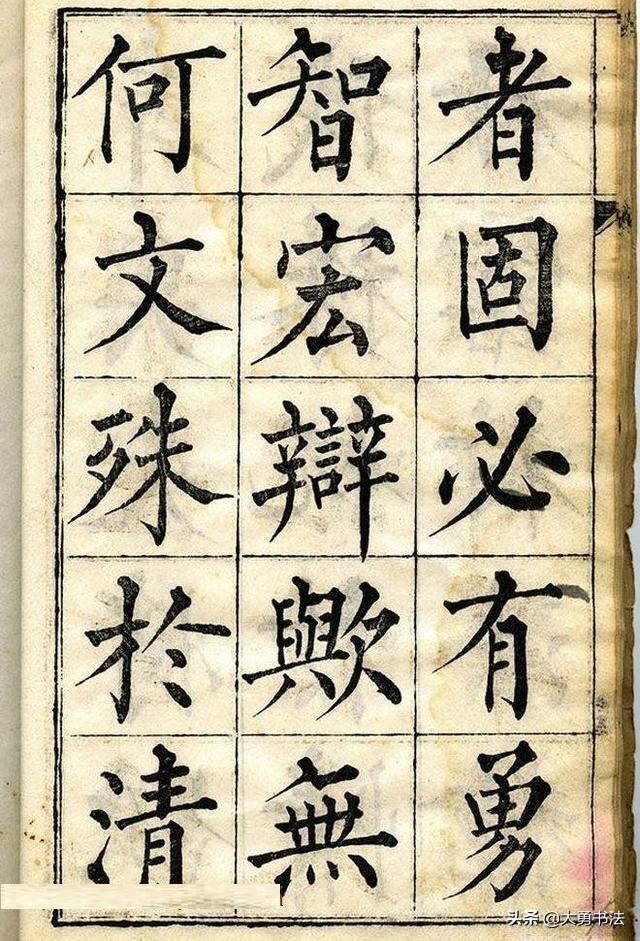 者固必有勇
智宏辯歟無
何文殊於清
头条 @大勇书法